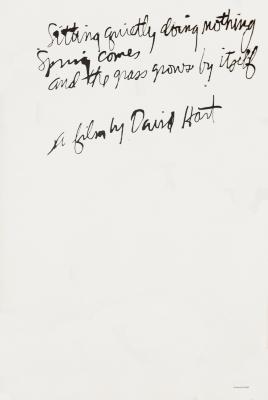 Sitting quietly doing nothing
Spring comes
and the grass grows by itself
a film by David Hart